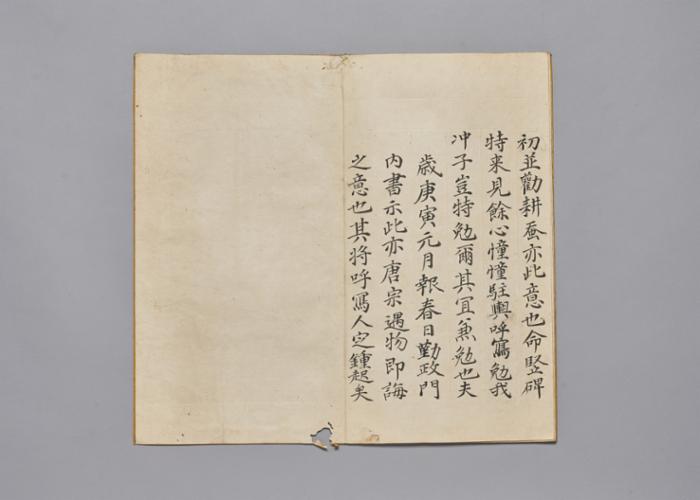 初並勸耕蚕亦此意也命竪碑
特来見餘心憧憧駐輿呼寫勉我
冲子豈特勉爾其冝兼勉也夫
歳庚寅元月報春日勤政門
内書示此亦唐宗遇物即誨
之意也其將呼寫人定鍾起矣